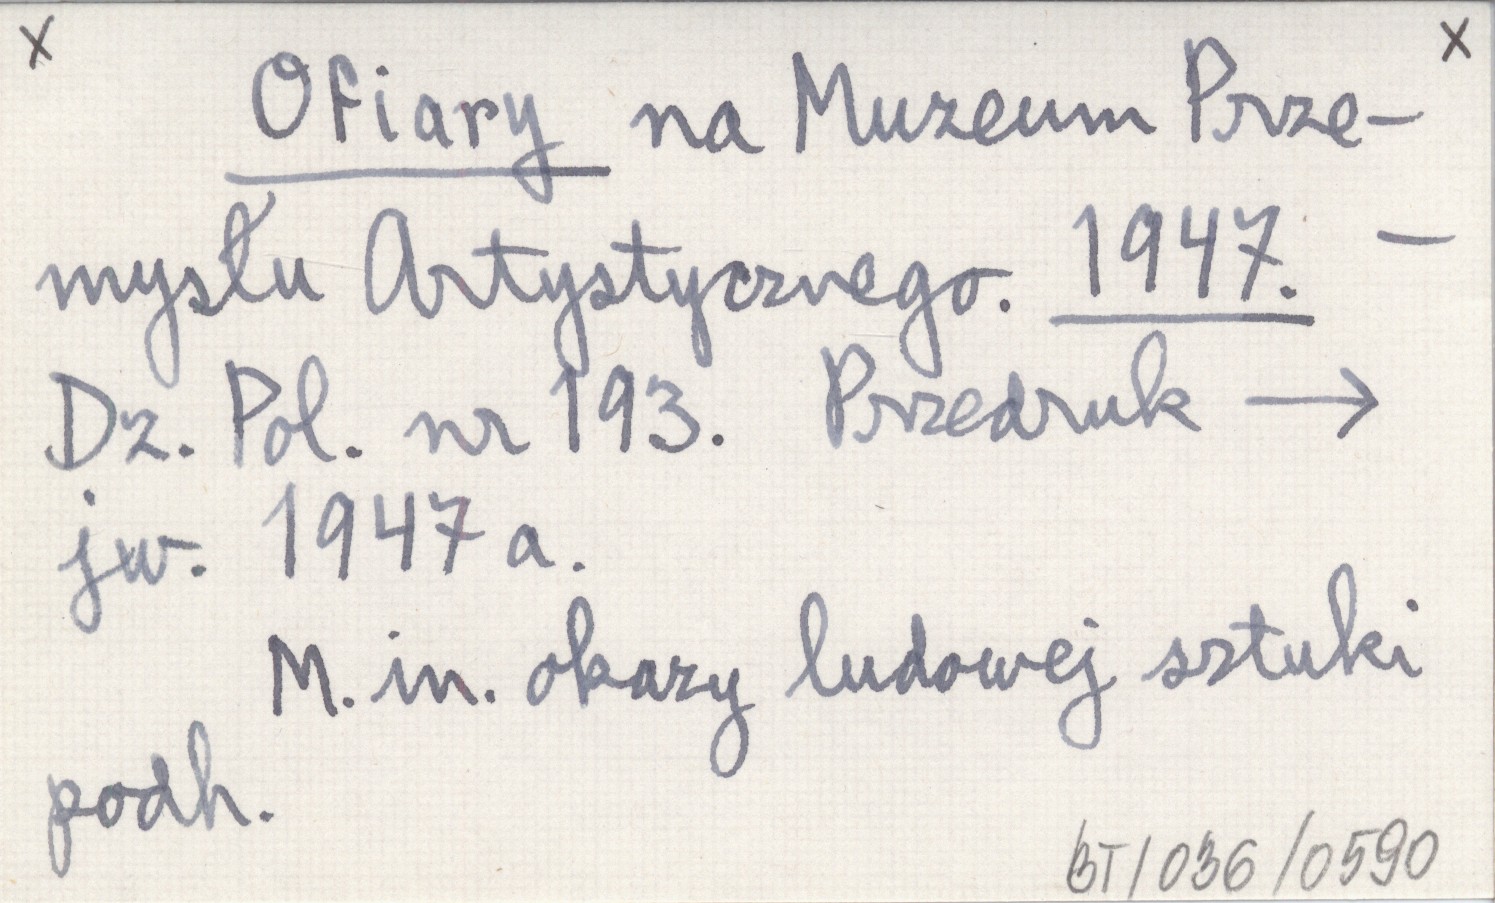 x x
Ofiary na Muzeum Prze-
mysłu Artystycznego. 1947. —
Dz. Pol. nr 193. Przedruk →
jw. 1947 a.
M. in. okazy ludowej sztuki
podh.
BT/036/0590